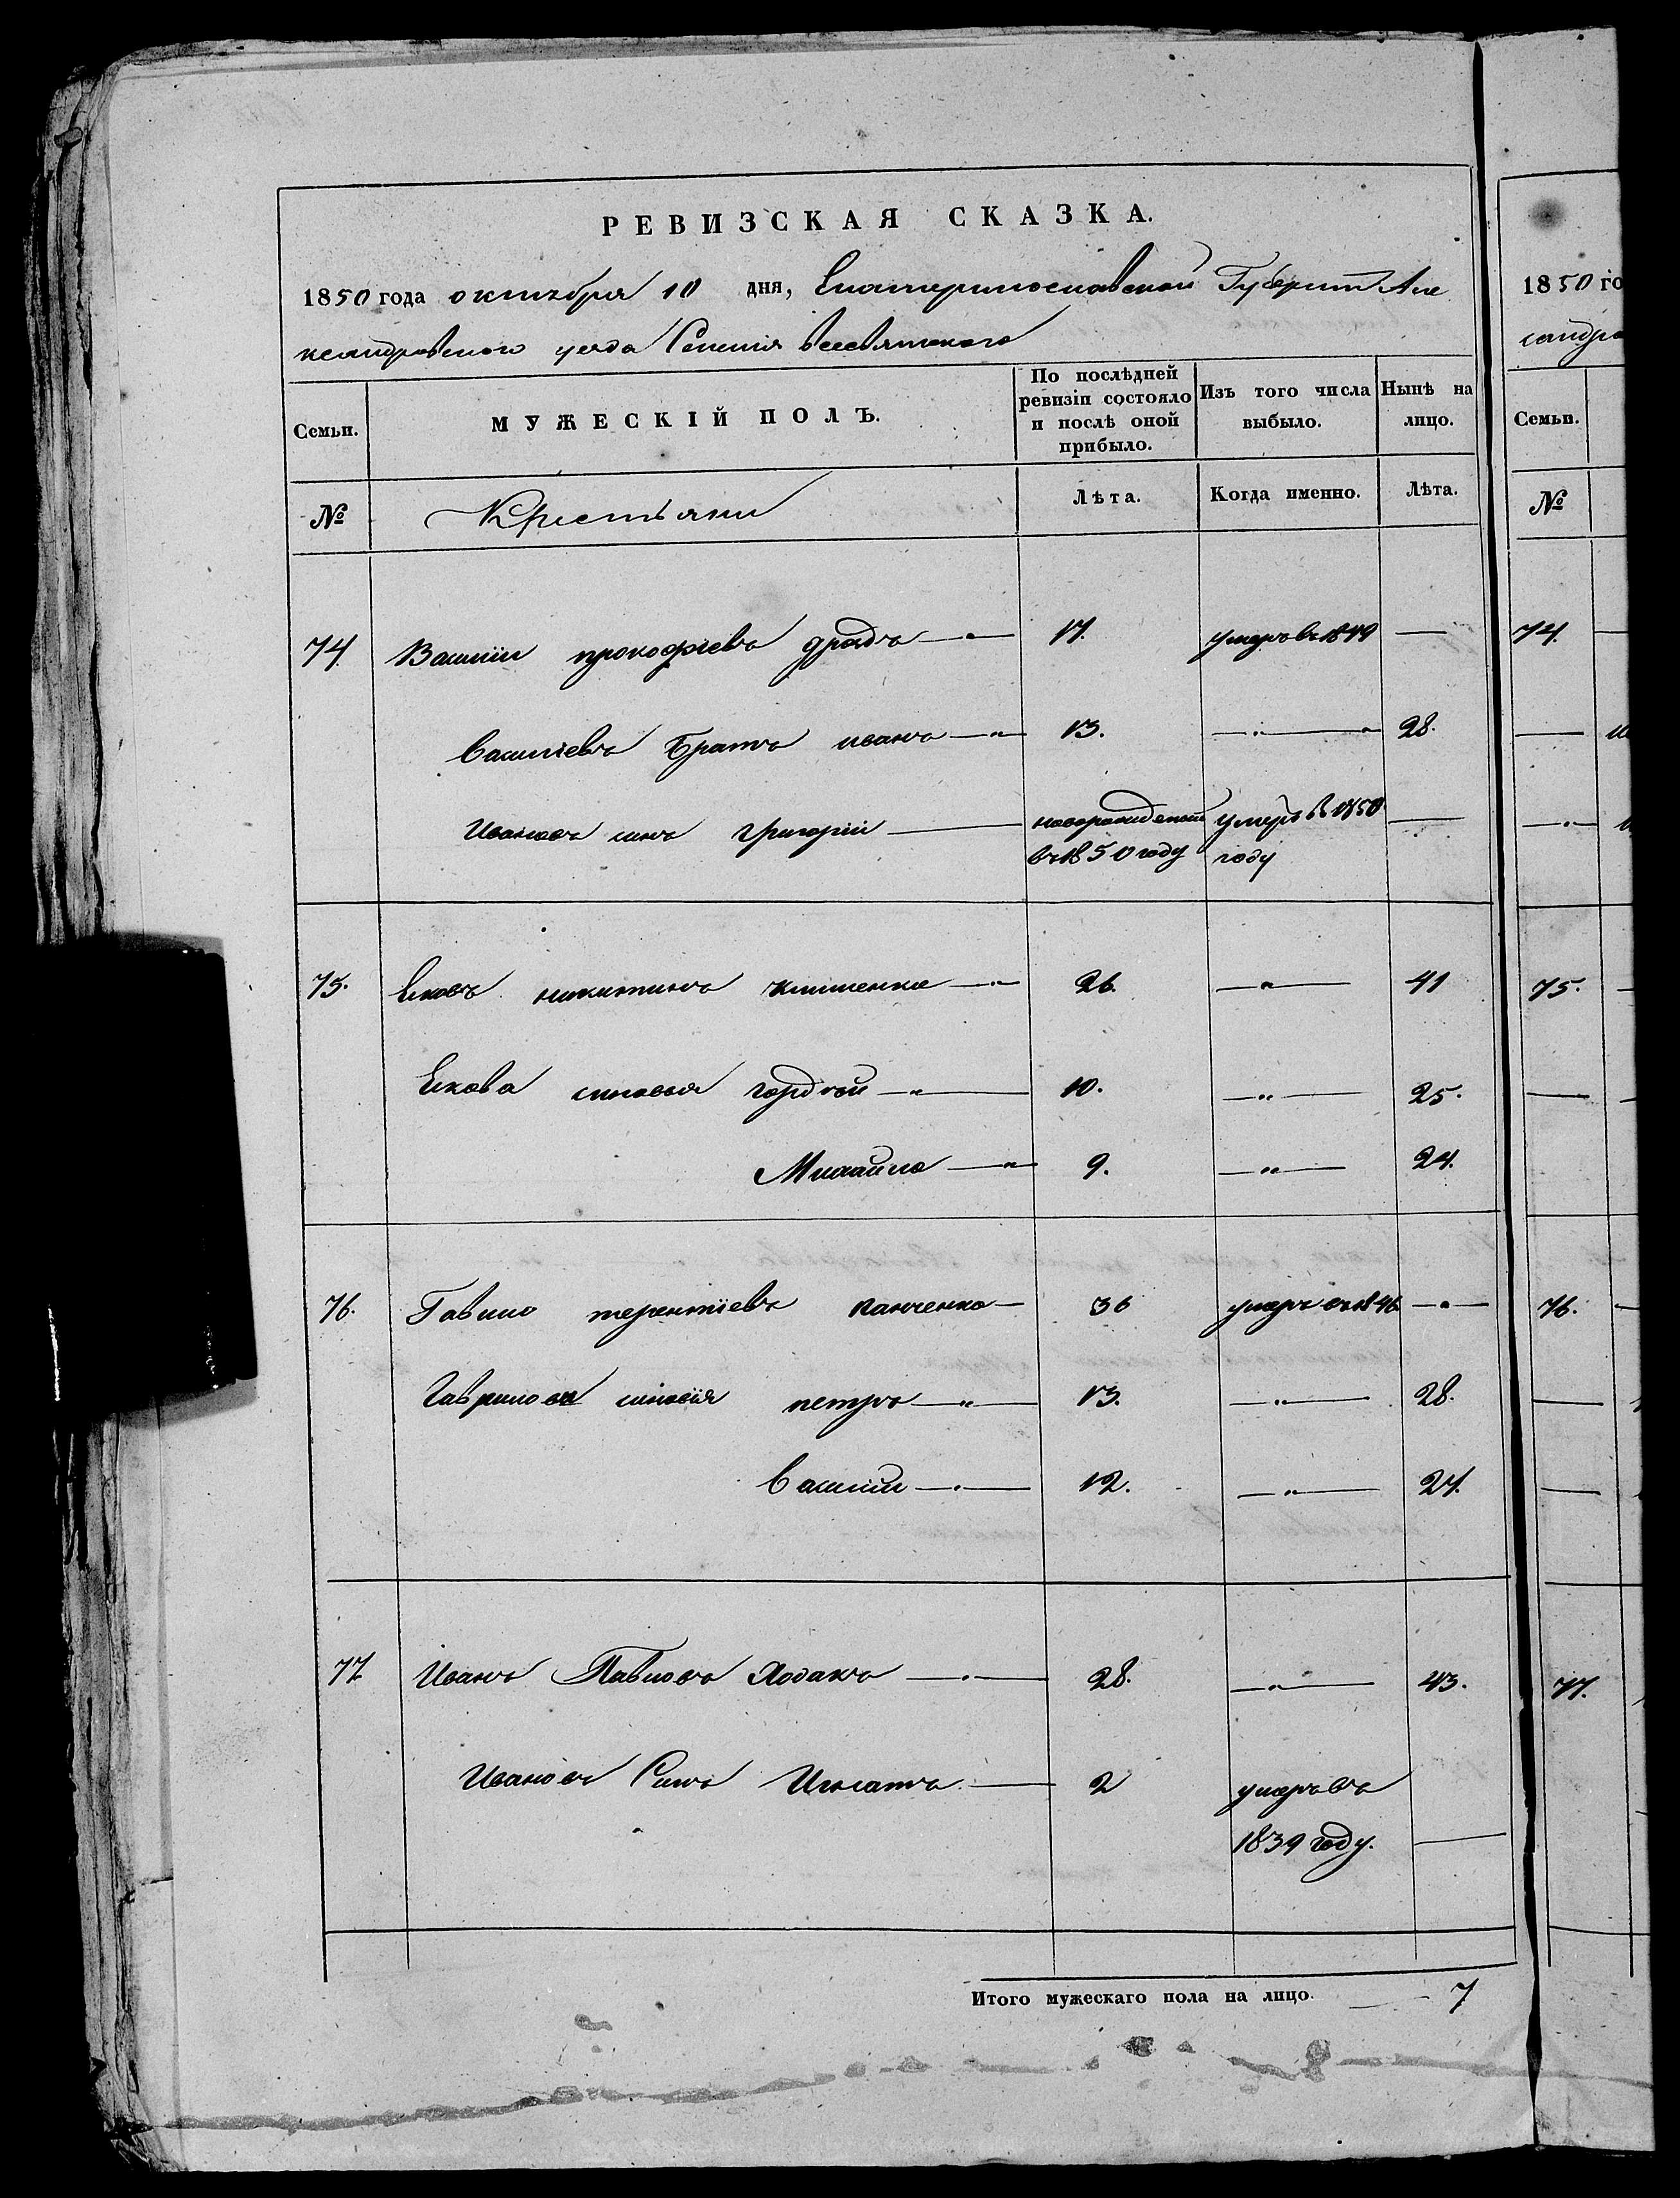 РЕВИЗСКАЯ СКАЗКА.
1850 года октября 10 дня, Екатеринославской Губернии Але
ксандровского уезда Селения Всесвятского
Семьи.
МУЖЕСКІЙ ПОЛЪ.
По послѣдней ревизіи состояло и послѣ оной прибыло.
Изъ того числа выбыло.
Нынѣ на лицо.
№
Крестьяни
Лѣта.
Когда именно.
Лѣта.
74. Василій прокофіевъ 17. умеръ въ 1849 —
Василіевъ Братъ иванъ —„— 13. —„— 28.
Ивановъ синъ григорій — новорожденой умеръ в 1850 —
въ 1850 году году
75. Яковъ никитинъ клименко —„— 26. —„— 41
Якова синовья гордей —„— 10. —„— 25.
Михайло —„— 9. —„— 24.
76. Гаврило терентіевъ панченко — 36 умеръ въ 1846 —„—
Гавриловы синовія петръ —„— 13. —„— 28.
Василій —„— 12. —„— 27.
77 Иванъ Павловъ Ходакъ —„— 28. —„— 43.
Ивановъ Синъ Игнатъ — 2 умеръ въ
1839 году. —
Итого мужескаго пола на лицо. — 7
1850 го
сандро
Семьи.
№
74.
75.
76.
77.